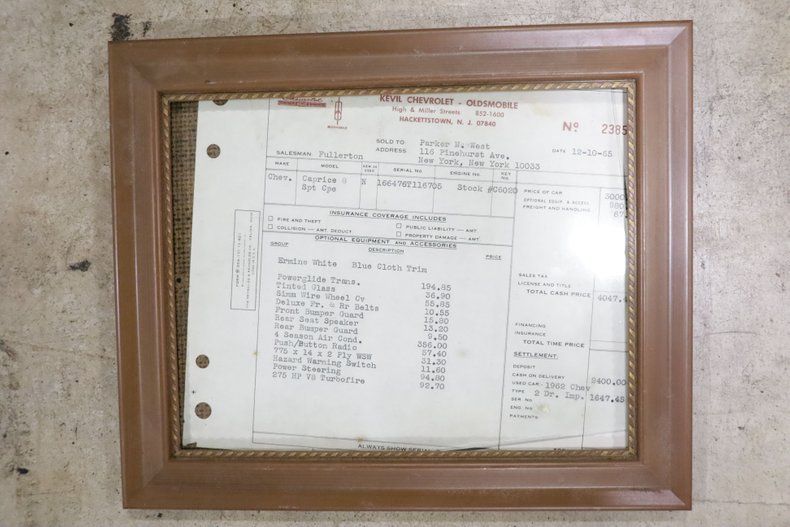 KEVIL CHEVROLET - OLDSMOBILE
High & Miller Streets 852-1600
HACKETTSTOWN, N. J. 07840
No 2385
SOLD TO Parker N. West
ADDRESS 116 Pinehurst Ave.
New York, New York 10033
DATE 12-10-65
SALESMAN Fullerton
MAKE MODEL SERIAL NO. ENGINE NO. KEY NO.
Chev. Caprice 8 N 166476T116705 Stock #C6020
Spt Cpe
PRICE OF CAR 3000
OPTIONAL EQUIP. & ACCESS. 980
FREIGHT AND HANDLING 67
INSURANCE COVERAGE INCLUDES
FIRE AND THEFT PUBLIC LIABILITY — AMT.
COLLISION — AMT. DEDUCT PROPERTY DAMAGE — AMT.
OPTIONAL EQUIPMENT AND ACCESSORIES
GROUP DESCRIPTION PRICE
Ermine White Blue Cloth Trim
Powerglide Trans. 194.85
Tinted Glass 36.90
Simm Wire Wheel Cv 55.85
Deluxe Fr. & Rr Belts 10.55
Front Bumper Guard 15.80
Rear Seat Speaker 13.20
Rear Bumper Guard 9.50
4 Season Air Cond. 356.00
Push/Button Radio 57.40
775 x 14 x 2 Ply WSW 31.30
Hazard Warning Switch 11.60
Power Steering 94.80
275 HP V8 Turbofire 92.70
SALES TAX
LICENSE AND TITLE
TOTAL CASH PRICE 4047.4
FINANCING
INSURANCE
TOTAL TIME PRICE
SETTLEMENT:
DEPOSIT
CASH ON DELIVERY 2400.00
USED CAR- 1962 Chev
TYPE 2 Dr. Imp. 1647.45
SER. NO.
ENG. NO.
PAYMENTS:
ALWAYS SHOW SERIAL